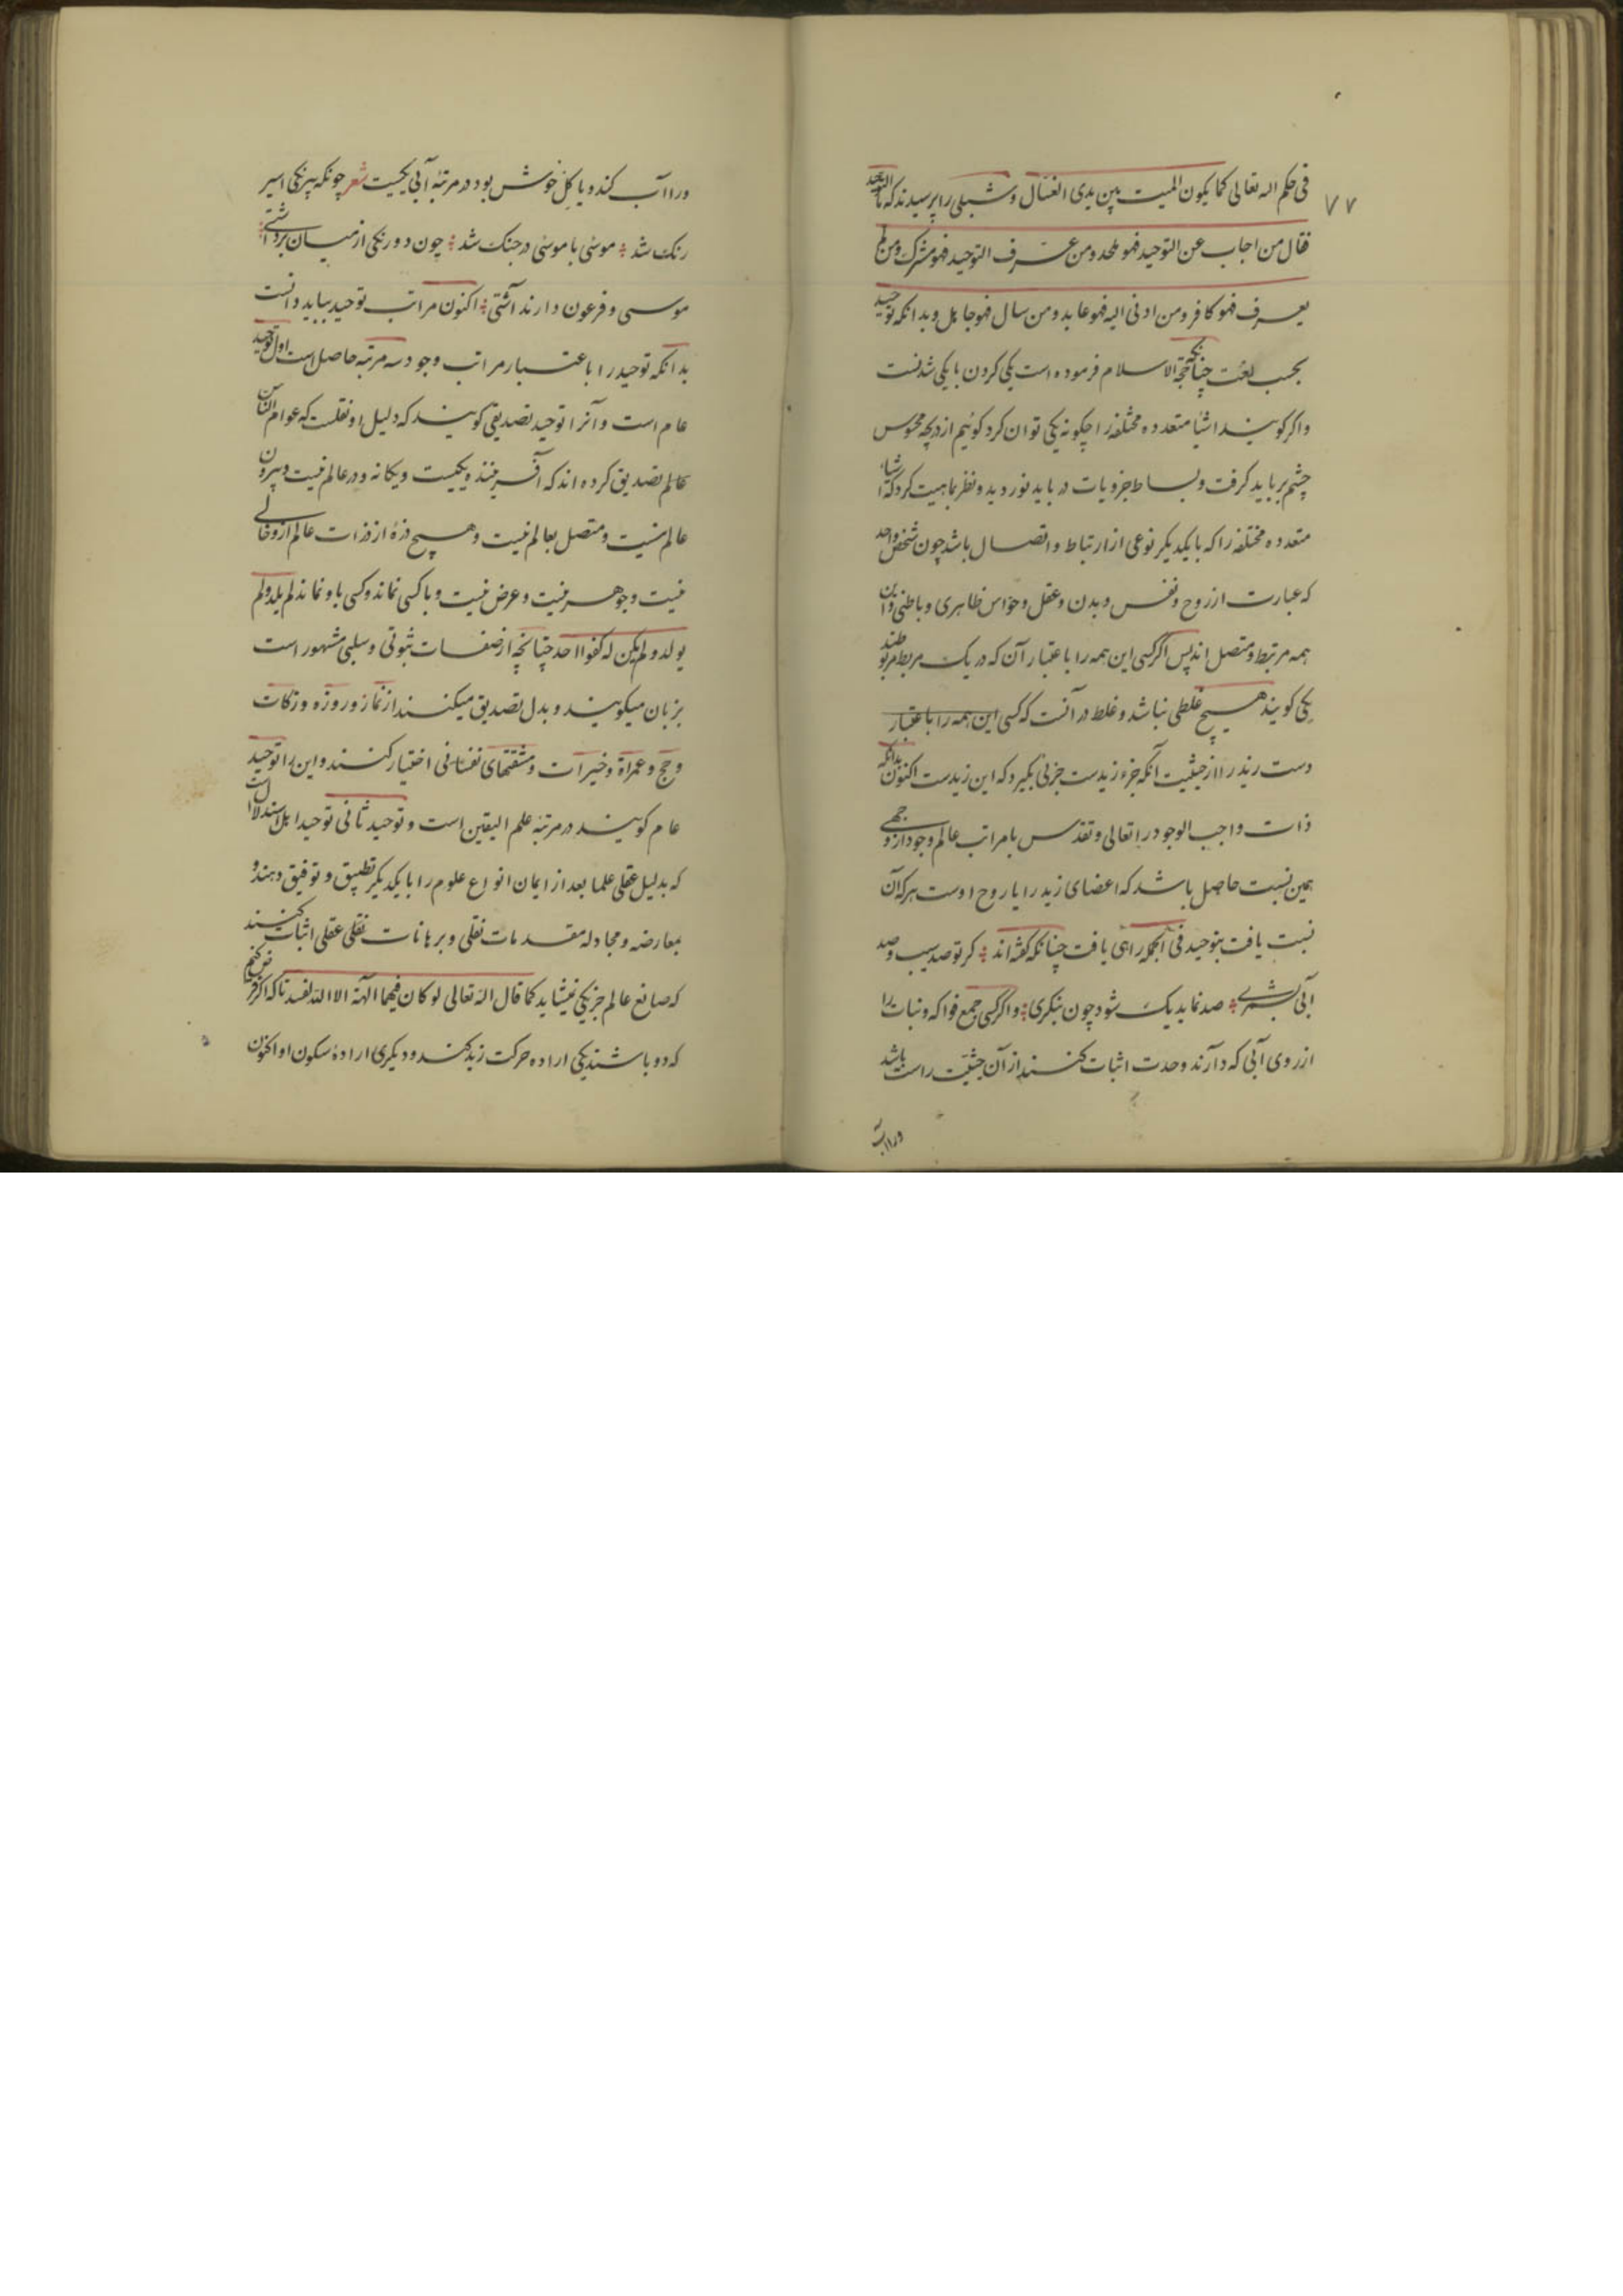 ۷۷
فی حکم اله تعالی کما یکون المیت بین یدی الغسال و شبلی را پرسیدند که ما التوحید
فقال من اجاب عن التوحید فهو ملحد و من عرف التوحید فهو مشرک و من لم
یعرف فهو کافر و من ادنی الیه فهو عابد و من سال فهو جاهل و بدانکه توحید
بحسب لغت چنانکه حجة الاسلام فرموده است یکی کردن با یکی شدنست
و اکر کویند اشیا متعدده مختلفه را چکونه یکی توان کرد کوئیم از دریچه محسوس
چشم بر باید کرفت و بساط جزویات در باید نوردید و نظر بماهیت کرد که اشیاء
متعدده مختلفه را که با یکدیکر نوعی از ارتباط و اتصال باشد چون شخص واحد
که عبارت از روح و نفس و بدن و عقل و حواس ظاهری و باطنی و این
همه مرتبط و متصل اند پس اکر کسی این همه را باعتبار آن که در یک مربط مربوطند
یکی کویند هیچ غلطی نباشد و غلط در آنست که کسی این همه را باعتبار
دست زید را از حیثیت آنکه جزء زیدست جزئی بکیرد که این زیدست اکنون بدانکه
ذات واجب الوجود را تعالی و تقدس با مراتب عالم وجود از وجهی
همین نسبت حاصل باشد که اعضای زید را با روح اوست هر که آن
نسبت یافت بتوحید فی الجمله راهی یافت چنانکه کفته اند کر تو صد سیب و صد
آبی بشمری صد نماید یک شود چون بنکری و اکر کسی جمع فواکه و نبات را
از روی آبی که دارند وحدت اثبات کنند از آن حیثیت راست باشد
ورا آب
ورا آب کند و یا کل خوش بود در مرتبهٔ آبی یکیست شعر چونکه بیرنکی اسیر
رنک شد موسی با موسی در جنک شد چون دو رنکی از میان برداشتی
موسی و فرعون دارند آشتی اکنون مراتب توحید بباید دانست
بدانکه توحید را باعتبار مراتب وجود سه مرتبه حاصل است اول توحید
عام است و آنرا توحید تصدیقی کویند که دلیل او نقلست که عوام الناس
عالم تصدیق کرده اند که آفریننده یکیست و یکانه و در عالم نیست و بیرون
عالم نیست و متصل بعالم نیست و هیچ ذرهٔ از ذرات عالم ازو خالی
نیست و جوهر نیست و عرض نیست و با کسی نماند و کسی باو نماند لم یلد و لم
یولد و لم یکن له کفوا احد چنانچه از صفات ثبوتی و سلبی مشهور است
بزبان میکویند و بدل تصدیق میکنند از نماز و روزه و زکات
و حج و عمرة و خیرات و مشقتهای نفسانی اختیار کنند و این را توحید
عام کویند در مرتبهٔ علم الیقین است و توحید ثانی توحید اهل استدلال است
که بدلیل عقلی علما بعد از ایمان انواع علوم را با یکدیکر تطبیق و توفیق دهند و
بمعارضه و مجادله مقدمات نقلی و برهانات نقلی عقلی اثبات کنند
که صانع عالم جز یکی نیشاید کما قال الله تعالی لو کان فیهما الهة الا الله لفسدتا که اکر فرض کنیم
که دو باشند یکی اراده حرکت زید کند و دیکری ارادهٔ سکون او اکنون